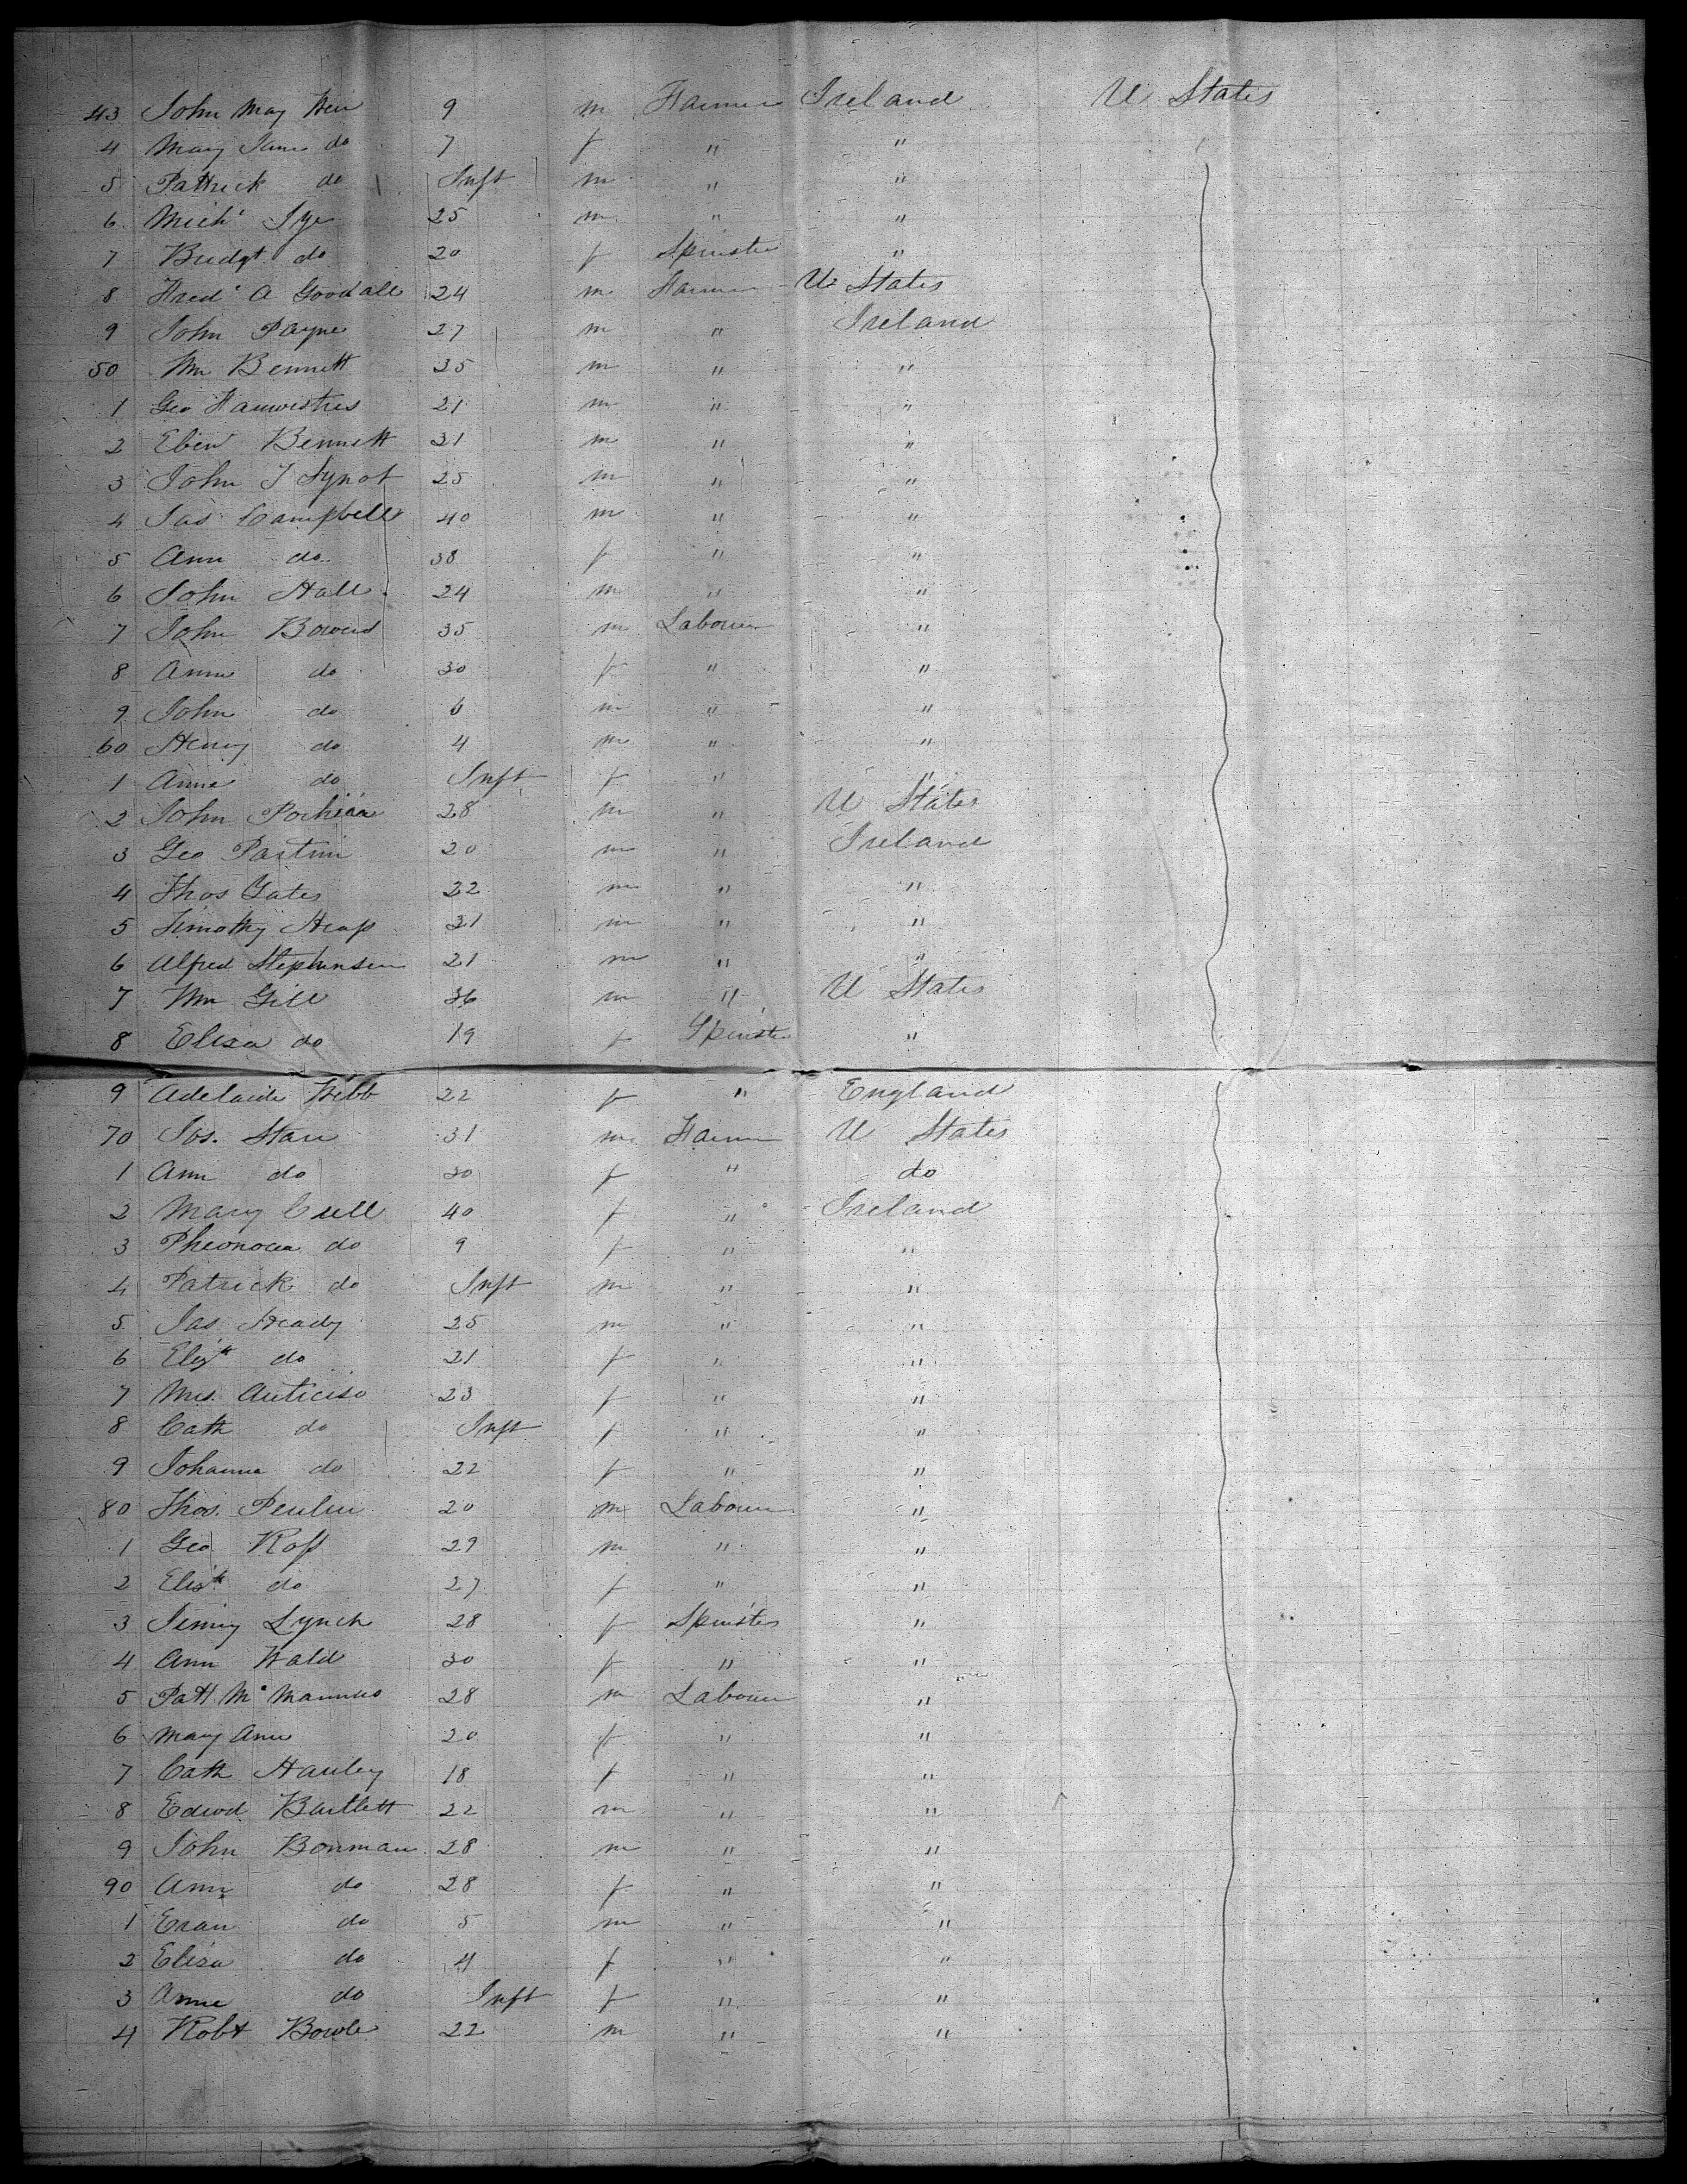 43 John May 9 m Farmer Ireland U States
4 Mary Jane do 7 f " "
5 Patrick do Inft m " "
6 Mich' Tye 25 m " "
7 Bridgt do 20 f Spinster "
8 Fred' A Goodall 24 m Farmer U States
9 John Payne 27 m " Ireland
50 Wm Bennett 35 m " "
1 Geo 21 m " "
2 Eben' Bennett 31 m " "
3 John T Synot 25 m " "
4 Jas Campbell 40 m " "
5 Ann do 38 f " "
6 John Hall 24 m " "
7 John Bowers 35 m Labourer "
8 Anne do 30 f " "
9 John do 6 m " "
60 Henry do 4 m " "
1 Anne do Inft f " "
2 John 28 m " U States
3 Geo 20 m " Ireland
4 Thos Yates 22 m " "
5 Timothy Heap 31 m " "
6 Alfred Stephenson 21 m " "
7 Wm Gill 36 m " U States
8 Eliza do 19 f Spinster "
9 Adelaide Webb 22 f " England
70 Jos. Starr 31 m Farmer U States
1 Ann do 30 f " do
2 Mary Cull 40 f " Ireland
3 do 9 f " "
4 Patrick do Inft m " "
5 Jas Heady 25 m " "
6 Elizth do 21 f " "
7 Mrs. 23 f " "
8 Cath do Inft f " "
9 Johanna do 22 f " "
80 Thos. 20 m Labourer "
1 Geo Ross 29 m " "
2 Elizth do 27 f " "
3 Jenny Lynch 28 f Spinster "
4 Ann Wald 30 f " "
5 Patk McMannus 28 m Labourer "
6 Mary Ann 20 f " "
7 Cath Hanley 18 f " "
8 Edwd Bartlett 22 m " "
9 John Bonman 28 m " "
90 Ann do 28 f " "
1 Evan do 5 m " "
2 Eliza do 4 f " "
3 Anne do Inft f " "
4 Robt Bowle 22 m " "